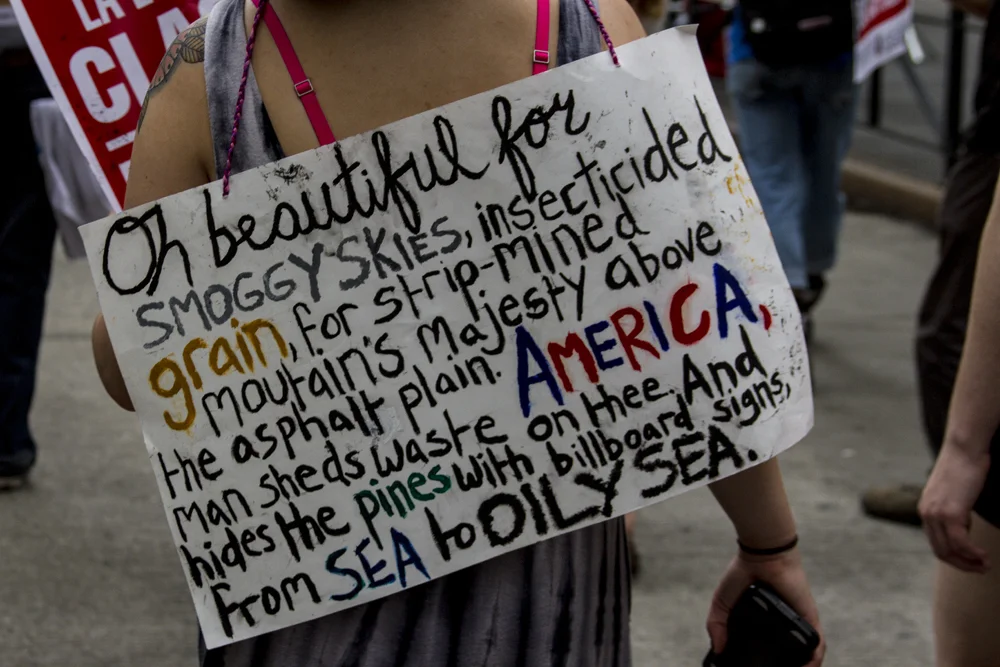 LA
CLAS
Oh beautiful for
SMOGGY SKIES, insecticided
grain, for strip-mined
moutain's majesty above
the asphalt plain. AMERICA,
man sheds waste on thee. And
hides the pines with billboard signs,
from SEA to OILY SEA.